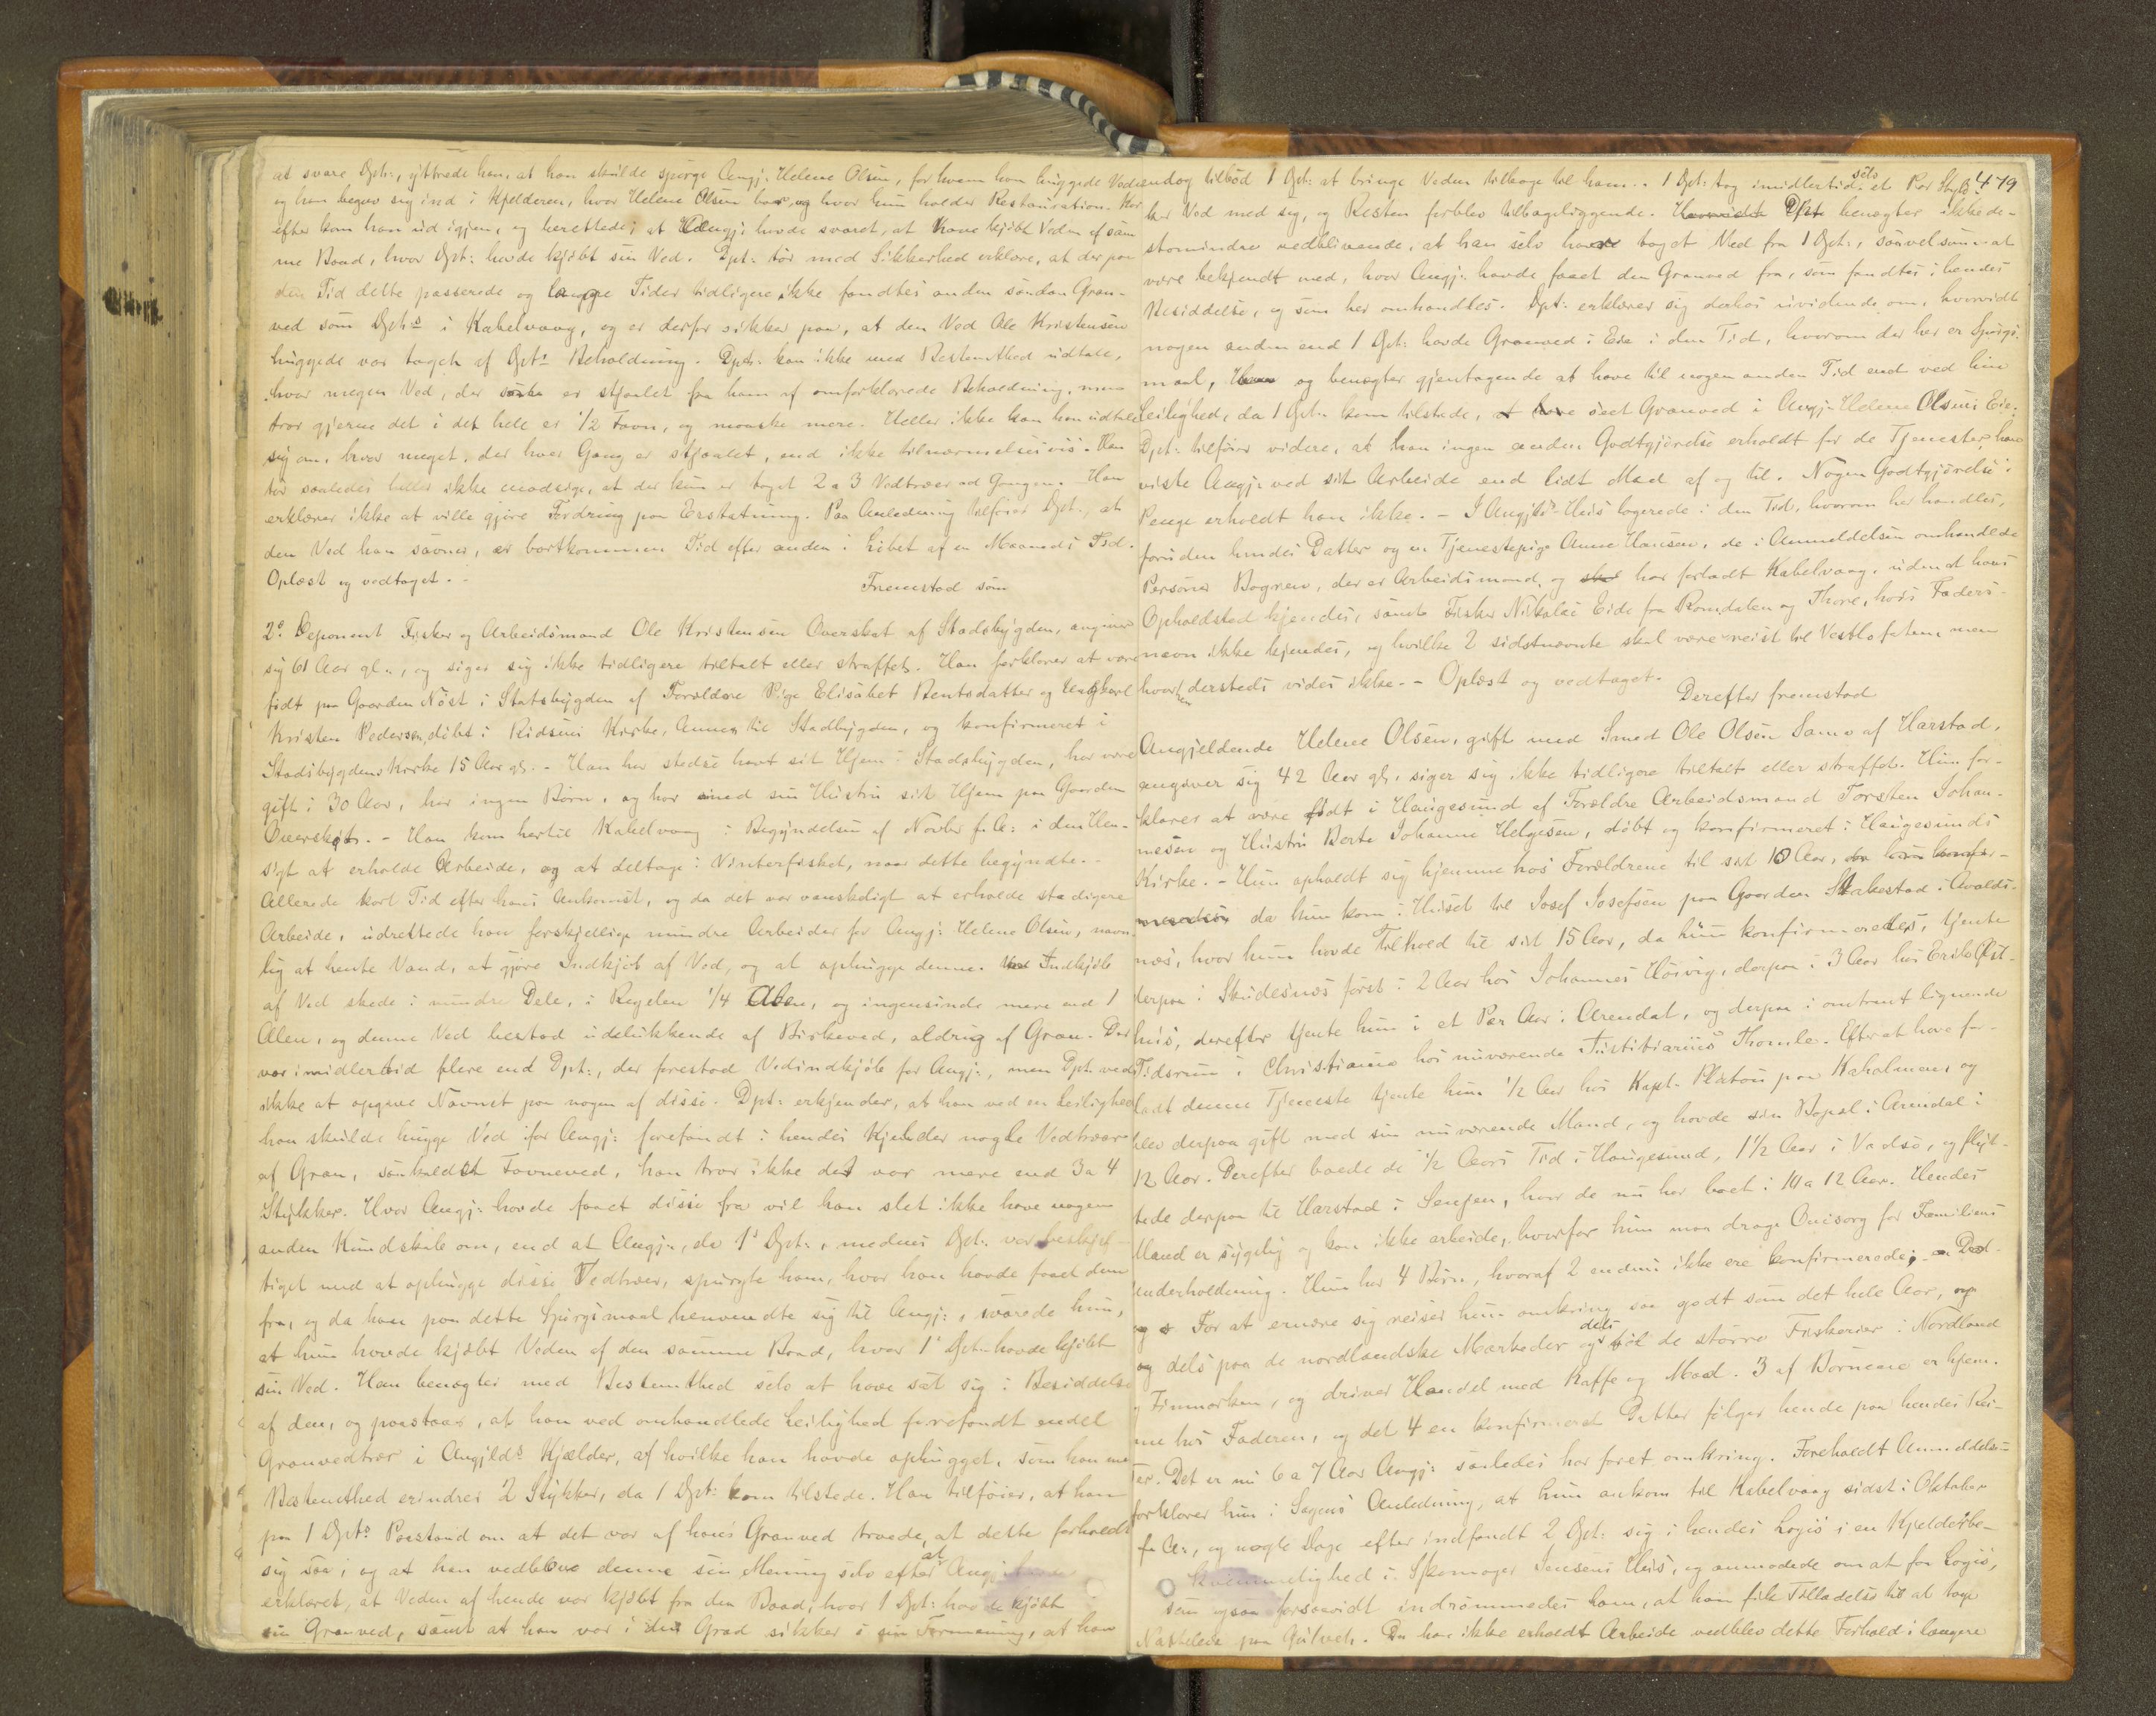 at svare Dpt:, yttrede han, at han skulde spørge Angj: Helene Olsen, for hvem han huggede Veden
og han begav sig ind i Kjelderen, hvor Helene Olsen boer, og hvor hun holder Restauration. Her
efter kom han ud igjen, og berettede, at Angj: havde svaret, at have kjøbt Veden af sam
me Baad, hvor Dpt: havde kjøbt sin Ved. Dpt: tør med Sikkerhed erklære, at der paa
den Tid dette passerede og længere Tider tidligere ikke fandtes anden saadan Gran-
ved som Dpts i Kabelvaag, og er derfor sikker paa, at den Ved Ole Kristensen
huggede var taget af Dpts Beholdning. Dpt: kan ikke med Bestemthed udtale,
hvor megen Ved, der er stjaalet fra ham af omforklarede Beholdning, men
tror gjerne det i det hele er 1/2 Favn, og maaske mere. Heller ikke kan han udtale
sig om, hvor meget, der hver Gang er stjaalet, end ikke tilnærmelsesvis. Han
tør saaledes heller ikke modsige, at der kun er taget 2 a 3 Vedtræer ad Gangen. Han
erklærer ikke at ville gjøre Fordring paa Erstatning. Paa Anledning tilføier Dpt:, at
den Ved han savner, er bortkommen Tid efter anden i Løbet af en Maaneds Tid.
Oplæst og vedtaget. -
Fremstod som
2. Deponent Fisker og Arbeidsmand Ole Kristensen Overskot af Stadsbygden, angiver
sig 61 Aar gl., og siger sig ikke tidligere tiltalt eller straffet. Han forklarer at være
født paa Gaarden Nøst i Statsbygden af Forældre Pige Elisabet Bentsdatter og Ungkarl
Kristen Pedersen, døbt i Ridsens Kirke, Annex til Stadbygden, og konfirmeret i
Stadsbygdens Kirke 15 Aar gl. - Han har stedse havt sit Hjem i Stadsbygden, har været
gift i 30 Aar, har ingen Børn, og har med sin Hustru sit Hjem paa Gaarden
Overskot. - Han kom hertil Kabelvaag i Begyndelsen af Novbr f. A: i den Hen-
sigt at erholde Arbeide, og at deltage i Vinterfisket, naar dette begyndte. -
Allerede kort Tid efter hans Ankomst, og da det var vanskeligt at erholde stadigere
Arbeide, udrettede han forskjellige mindre Arbeider for Angj: Helene Olsen, navn-
lig at hente Vand, at gjøre Indkjøb af Ved, og at ophugge denne. Indkjøb
af Ved skede i mindre Dele, i Regelen 1/4 Alen, og ingensinde mere end 1
Alen, og denne Ved bestod udelukkende af Birkeved, aldrig af Gran. Der
var imidlertid flere end Dpt:, der forestod Vedindkjøb for Angj:, men Dpt: ved
ikke at opgive Navnet paa nogen af disse. Dpt: erkjender, at han ved en Leilighed
han skulde hugge Ved for Angj: forefandt i hendes Kjelder nogle Vedtræer
af Gran, saakaldet Favneved, han tror ikke det var mere end 3 a 4
Stykker. Hvor Angj: havde faaet disse fra vil han slet ikke have nogen
anden Kundskab om, end at Angj:, da 1s Dpt:, medens Dpt: var beskjæf-
tiget med at ophugge disse Vedtræer, spurgte ham, hvor han havde faaet dem
fra, og da han paa dette Spørgsmaal henvendte sig til Angj:, svarede hun,
at hun havde kjøbt Veden af den samme Baad, hvor 1s Dpt: havde kjøbt
sin Ved. Han benægter med Bestemthed selv at have sat sig i Besiddelse
af den, og paastaar, at han ved omhandlede Leilighed forefandt endel
Granvedtrær i Angjlds Kjælder, af hvilke han havde ophugget, som han med
Bestemthed erindrer 2 Stykker, da 1 Dpt: kom tilstede. Han tilføier, at han
paa 1 Dpts Paastand om at det var af hans Granved troede, at dette forholdt
sig saa, og at han vedblev denne sin Mening selv efter at Angj: havde
erklæret, at Veden af hende var kjøbt fra den Baad, hvor 1 Dpt: havde kjøbt
sin Granved, samt at han var i den Grad sikker i sin Formening, at han
479
endog tilbød 1 Dpt: at bringe Veden tilbage til ham. - 1 Dpt: tog imidlertid selv et Par Styk-
ker Ved med sig, og Resten forblev tilbageliggende. Dpt: benægter ikkede-
stomindre vedblivende, at han selv havde taget Ved fra 1 Dpt:, saavelsom at
være bekjendt med, hvor Angj: havde faaet den Granved fra, som fandtes i hendes
Besiddelse, og som her omhandles. Dpt: erklærer sig derhos uvidende om, hvorvidt
nogen anden end 1 Dpt: havde Granved i Eie i den Tid, hvorom der her er Spørgs-
maal, og benægter gjentagende at have til nogen anden Tid end ved hin
Leilighed, da 1 Dpt: kom tilstede, seet Granved i Angj: Helene Olsens Eie.
Dpt: tilføier videre, at han ingen anden Godtgjørelse erholdt for de Tjenester, han
viste Angj: ved sit Arbeide end lidt Mad af og til. Nogen Godtgjørelse i
Penge erholdt han ikke. - I Angjlds Hus logerede i den Tid, hvorom her handles,
foruden hendes Datter og en Tjenestepige Anne Hansen, de i Anmeldelsen omhandlede
Personer Bogren, der er Arbeidsmand, og har forladt Kabelvaag, uden at hans
Opholdsted kjendes, samt Fisker Nikolai Eide fra Romdalen og Thore, hvis Faders-
navn ikke kjendes, og hvilke 2 sidstnævnte skal være reist til Vestlofoten, men
hvorhen dersteds vides ikke. - Oplæst og vedtaget.
Derefter fremstod
Angjeldende Helene Olsen, gift med Smed Ole Olsen Samo af Harstad,
angiver sig 42 Aar gl, siger sig ikke tidligere tiltalt eller straffet. Hun for-
klarer at være født i Haugesund af Forældre Arbeidsmand Torsten Johan-
nesen og Hustru Berte Johanne Helgesen, døbt og konfirmeret i Haugesunds
Kirke. - Hun opholdt sig hjemme hos Forældrene til sit 10 Aar,
da hun kom i Huset til Josef Josefsen paa Gaarden Stakestad i Avalds-
næs, hvor hun havde Tilhold til sit 15 Aar, da hun konfirmeredes, tjente
derpaa i Skudesnæs først i 2 Aar hos Johannes Høivig, derpaa i 3 Aar hos Erik Øst-
hus, derefter tjente hun i et Par Aar i Arendal, og derpaa i omtrent lignende
Tidsrum i Christiania hos nuværende Justitiarius Thomle. Efter at have for-
ladt denne Tjeneste tjente hun 1/2 Aar hos Kapt. Platou paa Kaholmen, og
blev derpaa gift med sin nuværende Mand, og havde sin Bopæl i Arendal i
12 Aar. Derefter boede de 1/2 Aars Tid i Haugesund, 1 1/2 Aar i Vadsø, og flyt-
tede derpaa til Harstad i Senjen, hvor de nu har boet i 10 a 12 Aar. Hendes
Mand er sygelig og kan ikke arbeide, hvorfor hun maa drage Omsorg for Familiens
Underholdning. Hun har 4 Børn, hvoraf 2 endnu ikke ere konfirmerede;
For at ernære sig reiser hun omkring saa godt som det hele Aar,
og dels paa de nordlandske Markeder og dels til de større Fiskerier i Nordland
og Finmarken, og driver Handel med Kaffe og Mad. 3 af Børnene er hjem-
me hos Faderen, og det 4 en konfirmeret Datter følger hende paa hendes Rei-
ser. Det er nu 6 a 7 Aar Angj: saaledes har faret omkring. Foreholdt Anmeldelsen
forklarer hun i Sagens Anledning, at hun ankom til Kabelvaag sidst i Oktober
f. A:, og nogle Dage efter indfandt 2 Dpt: sig i hendes Logis i en Kjelderbe-
kvemmelighed i Skomager Jensens Hus, og anmodede om at faa Logis,
som ogsaa forsaavidt indrømmedes ham, at han fik Tilladelse til at tage
Natteleie paa Gulvet. Da han ikke erholdt Arbeide vedblev dette Forhold i længere